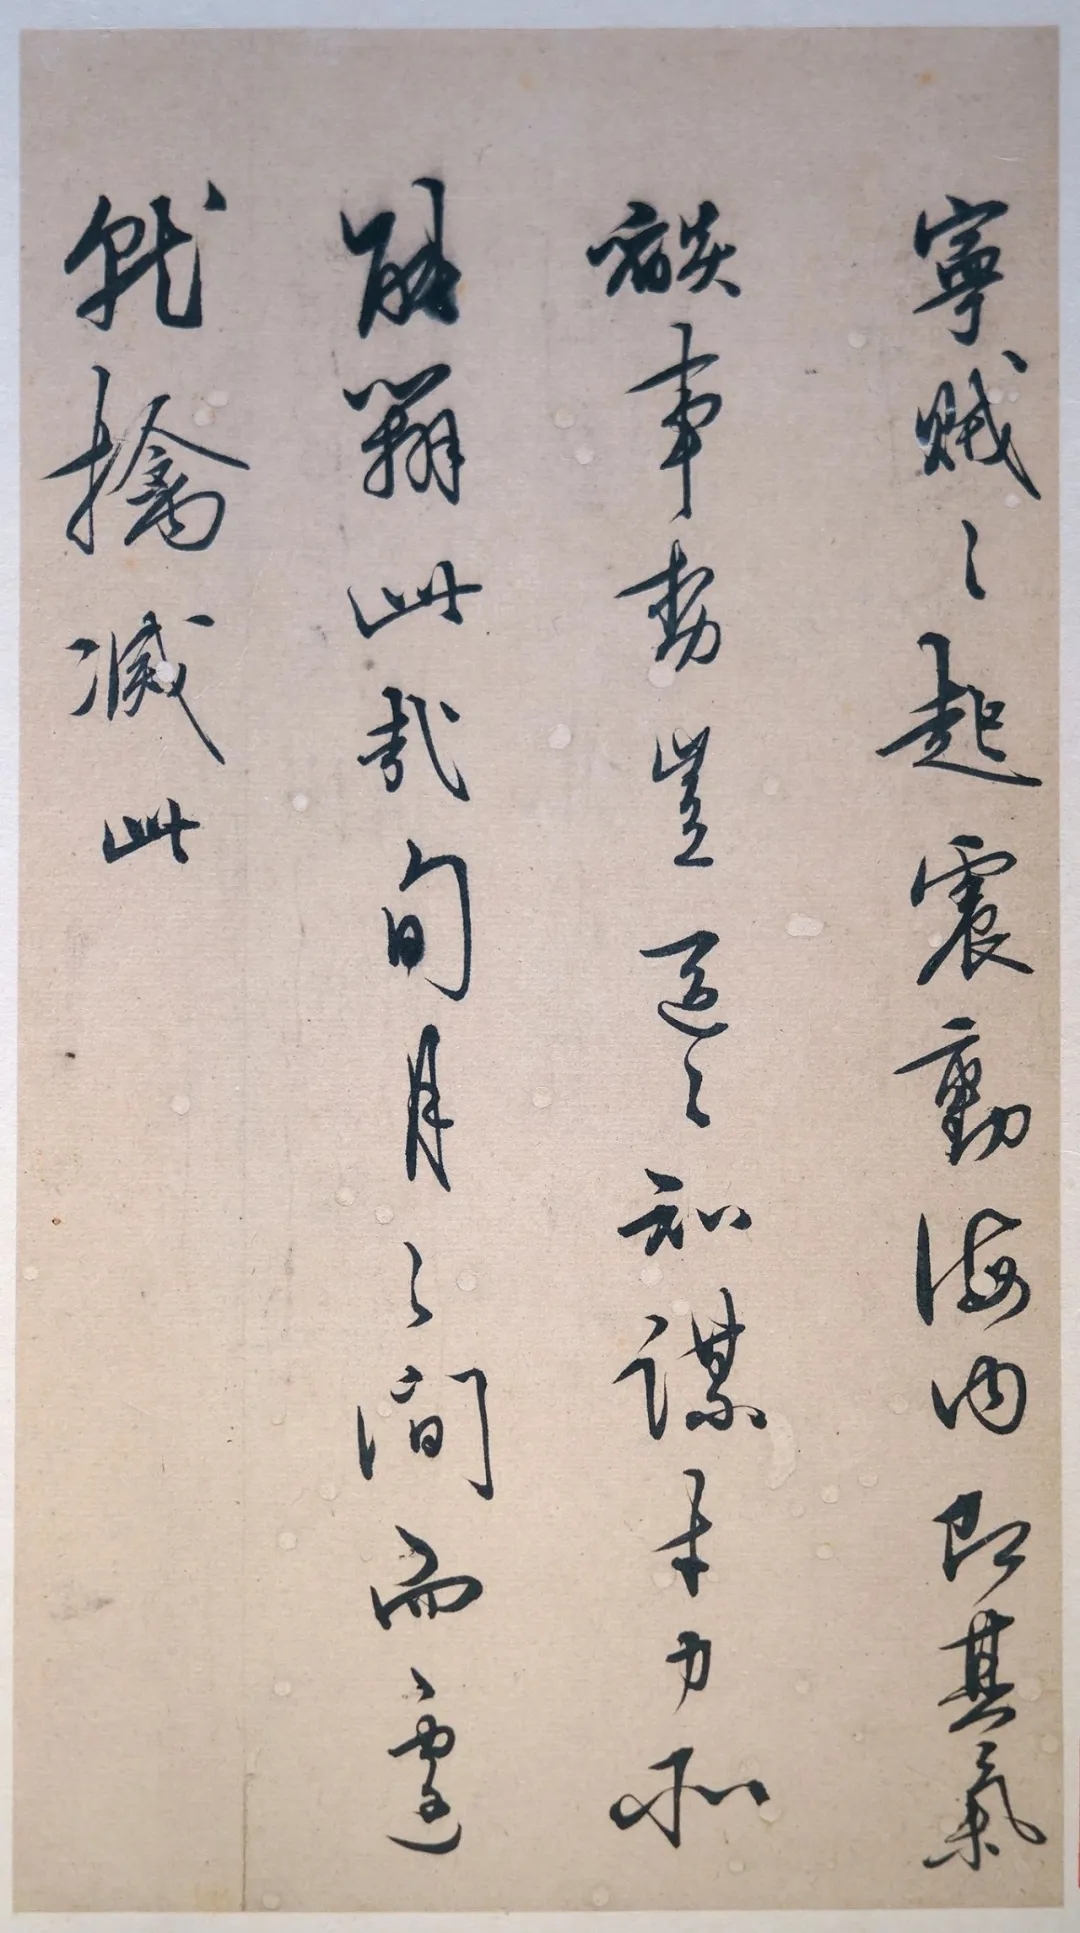 寧賊之起震動海内即其氣
燄事勢豈區之知謀才力所
能辦此哉旬月之間而遽
就擒滅此